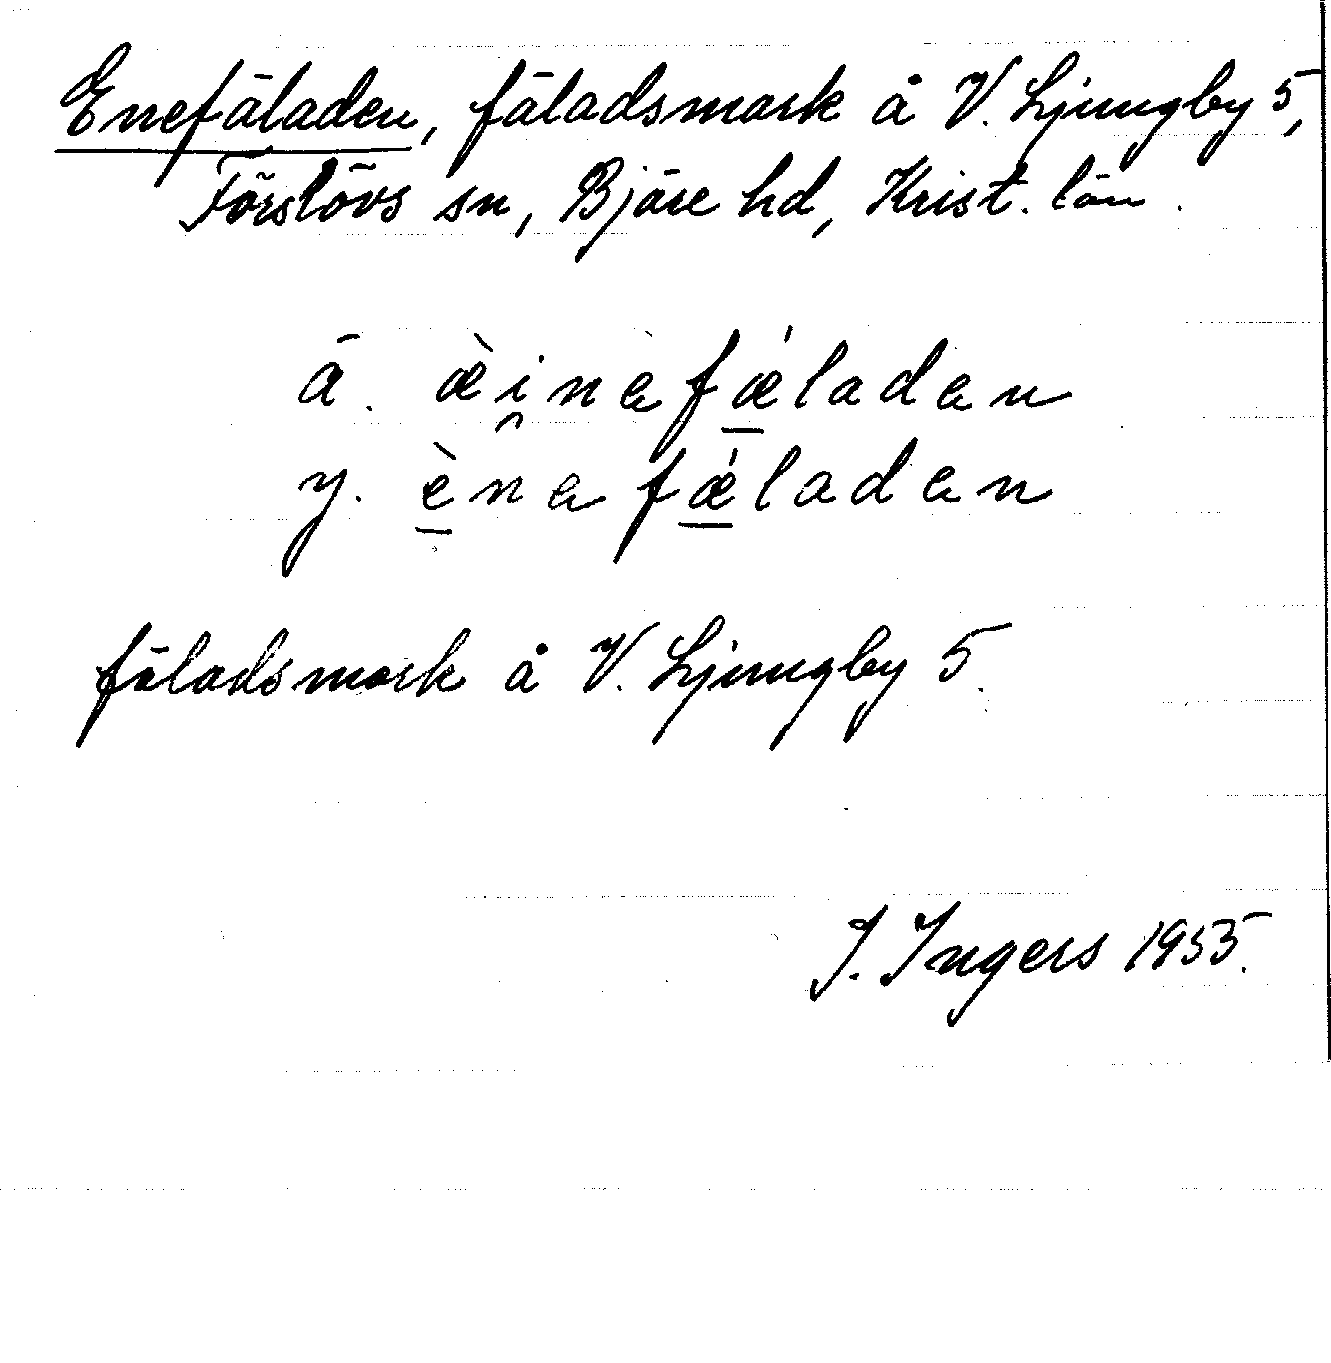 Enefäladen, fäladsmark å V. Ljungby 5,
Förslövs sn, Bjäre hd, Krist. län.
ä. æ̀i̯nəfǽ̱ladən
y. è̱nəfǽ̱ladən
fäladsmark å V. Ljungby 5.
I. Ingers 1955.